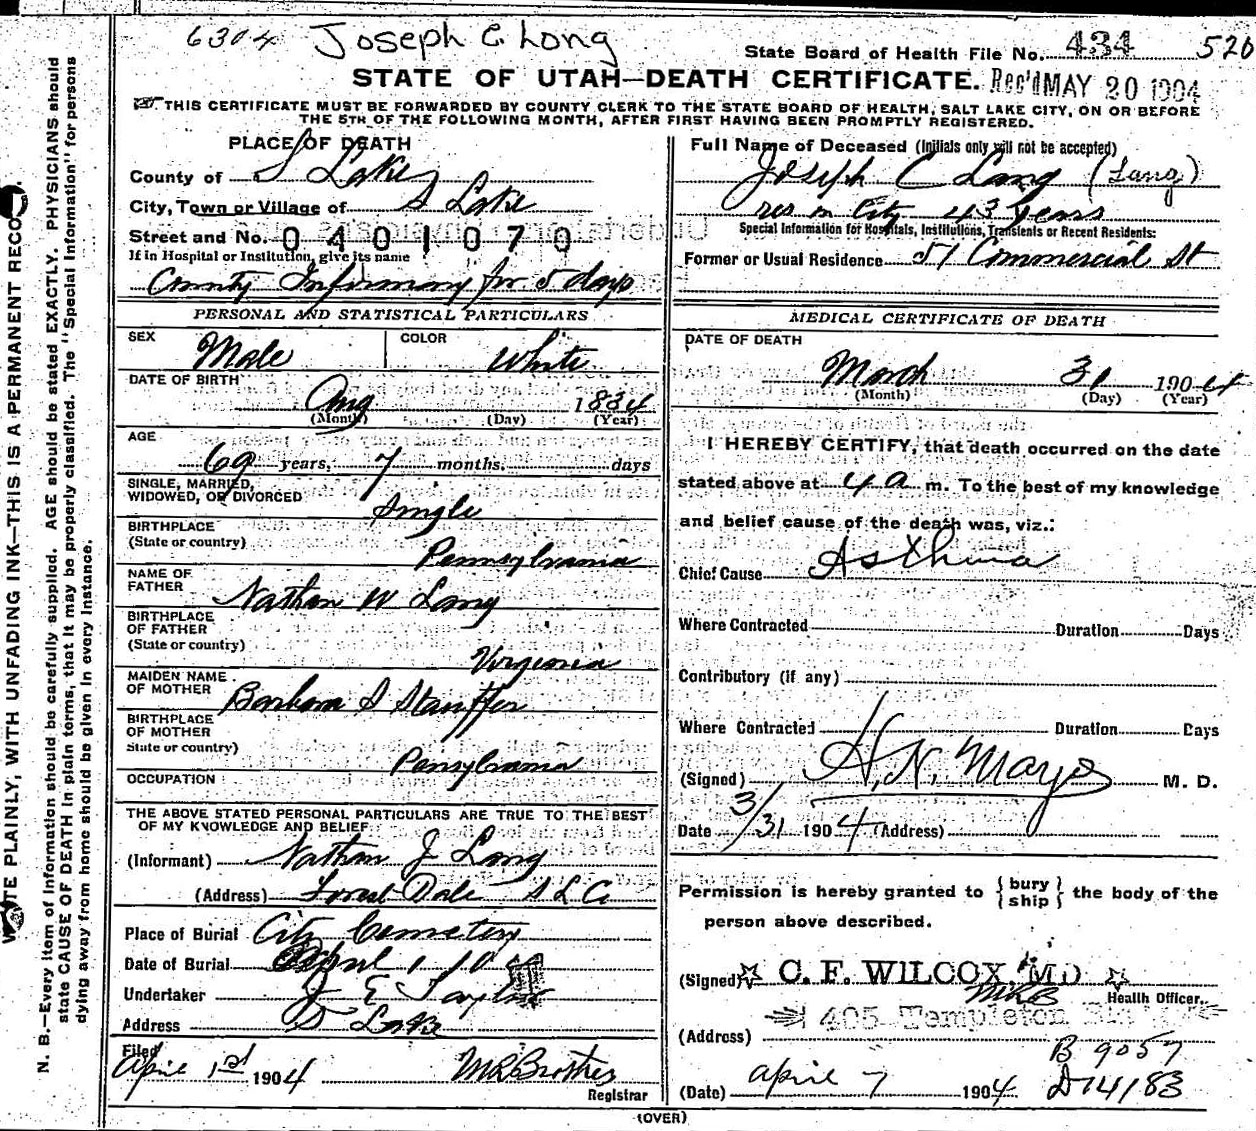 6304 Joseph C. Long
State Board of Health File No. 434 520
STATE OF UTAH—DEATH CERTIFICATE. Rec'd MAY 20 1904
THIS CERTIFICATE MUST BE FORWARDED BY COUNTY CLERK TO THE STATE BOARD OF HEALTH, SALT LAKE CITY, ON OR BEFORE
THE 5TH OF THE FOLLOWING MONTH, AFTER FIRST HAVING BEEN PROMPTLY REGISTERED.
PLACE OF DEATH
County of S Lake
City, Town or Village of S Lake
Street and No. 0401070
If in Hospital or Institution, give its name
County Infirmary for 5 days
PERSONAL AND STATISTICAL PARTICULARS
SEX Male COLOR White
DATE OF BIRTH
Aug 1834
(Month) (Day) (Year)
AGE
69 years, 7 months. days
SINGLE, MARRIED,
WIDOWED, OR DIVORCED Single
BIRTHPLACE
(State or country) Pennsylvania
NAME OF
FATHER Nathan W Lang
BIRTHPLACE
OF FATHER
(State or country) Virginia
MAIDEN NAME
OF MOTHER Barbara S Stauffer
BIRTHPLACE
OF MOTHER
State or country) Pensylvania
OCCUPATION
THE ABOVE STATED PERSONAL PARTICULARS ARE TRUE TO THE BEST
OF MY KNOWLEDGE AND BELIEF
(Informant) Nathan J Lang
(Address) Forest Dale S L C
Place of Burial City Cemetery
Date of Burial April 1
Undertaker J E Taylor
Address S Lake
Filed
April 1st 1904 M R Brothers
Registrar
Full Name of Deceased (Initials only will not be accepted)
Joseph C Lang (Lang)
res in City 43 years
Special Information for Hospitals, Institutions, Transients or Recent Residents:
Former or Usual Residence 51 Commercial St
MEDICAL CERTIFICATE OF DEATH
DATE OF DEATH
March 31 1904
(Month) (Day) (Year)
I HEREBY CERTIFY, that death occurred on the date
stated above at 4 a m. To the best of my knowledge
and belief cause of the death was, viz.:
Chief Cause Asthma
Where Contracted Duration Days
Contributory (if any)
Where Contracted Duration Days
(Signed) H. N. Mayo M. D.
Date 3/31 1904 (Address)
Permission is hereby granted to {bury ship} the body of the
person above described.
(Signed) C. F. WILCOX, MD
MRB Health Officer.
(Address) 405 Templeton
B. 9057
(Date) April 7 1904 D 14183
(OVER)
WRITE PLAINLY, WITH UNFADING INK—THIS IS A PERMANENT RECORD.
N. B.—Every item of information should be carefully supplied. AGE should be stated EXACTLY. PHYSICIANS should
state CAUSE OF DEATH in plain terms, that it may be properly classified. The "Special Information" for persons
dying away from home should be given in every instance.